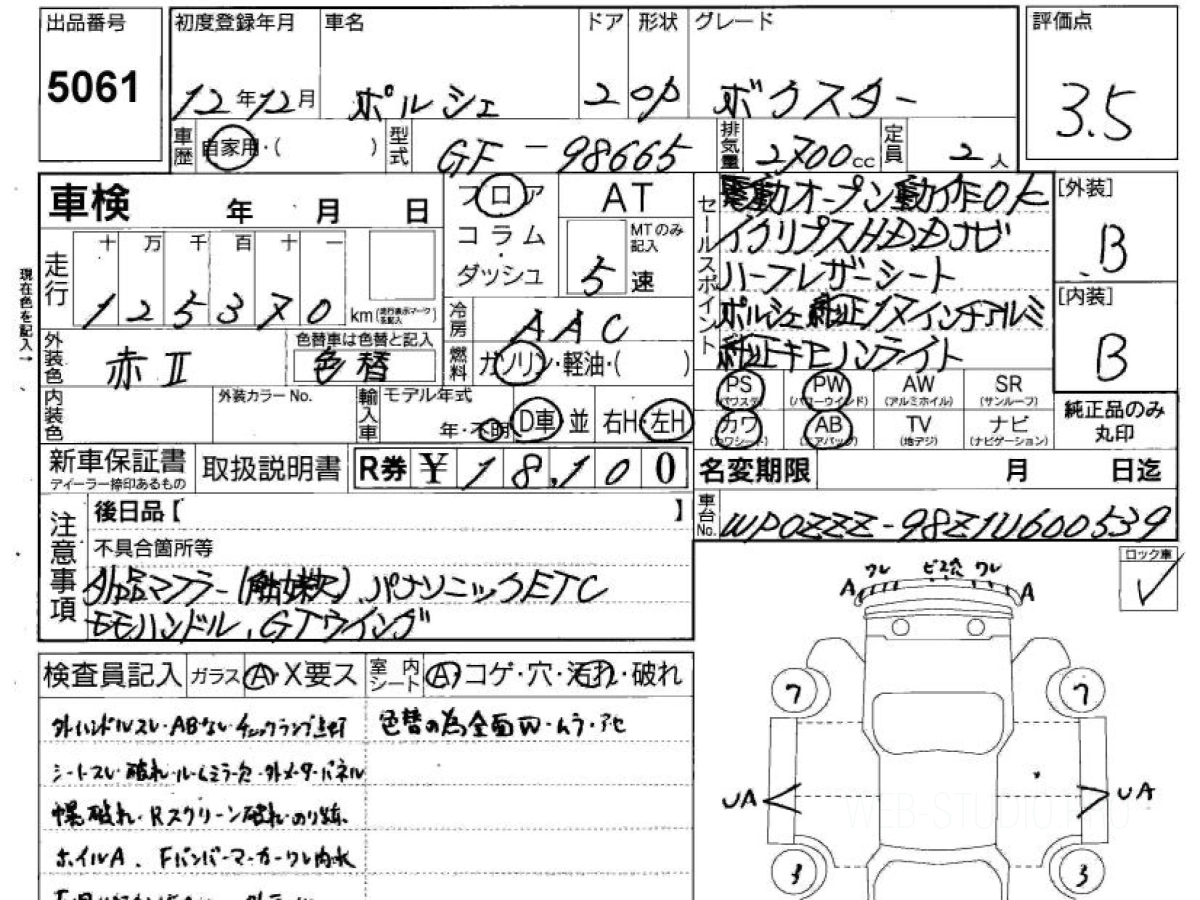 出品番号
5061
初度登録年月 車名 ドア 形状 グレード
12年12月 ポルシェ 2 OP ボクスター
評価点
3.5
車歴 自家用・( ) 型式 GF-98665 排気量 2700cc 定員 2人
車検 年 月 日
フロア AT
コラム
ダッシュ
MTのみ記入
5速
現在色を記入→
走行 十 万 千 百 十 一
125370 km(走行表示マークを記入)
冷房 AAC
外装色 赤Ⅱ 色替車は色替と記入
色替
燃料 ガソリン・軽油・( )
内装色 外装カラーNo. 輸入車 モデル年式
年・不明 D車 並 右H・左H
セールスポイント
電動オープン動作OK
イクリプスHDDナビ
ハーフレザーシート
ポルシェ純正17インチアルミ
純正キセノンライト
[外装]
B
[内装]
B
PS (パワステ) PW (パワーウインド) AW (アルミホイル) SR (サンルーフ)
カワ (カワシート) AB (エアバッグ) TV (地デジ) ナビ (ナビゲーション)
純正品のみ
丸印
新車保証書 ディーラー捺印あるもの 取扱説明書 R券 ¥18,100
名変期限 月 日迄
車台No. WP0ZZZ-98Z1U600539
注意事項
後日品【 】
不具合箇所等
外品マフラー(触媒欠)、パナソニックETC
モモハンドル、GTウイング
ロック車
検査員記入 ガラス A・X要ス 室内シート A・コゲ・穴・汚れ・破れ
外ハンドルスレ・ABなし・チェックランプ点灯
色替の為全面W・ムラ・アセ
シートスレ・破れ・ルームミラー欠・外メーターパネル
幌破れ・Rスクリーン破れ・のり跡、
ホイルA、Fバンパーマーカーワレ内水
A ワレ ビス穴 ワレ A
7 7
UA UA
WEB-STUDIO.PRO
3 3